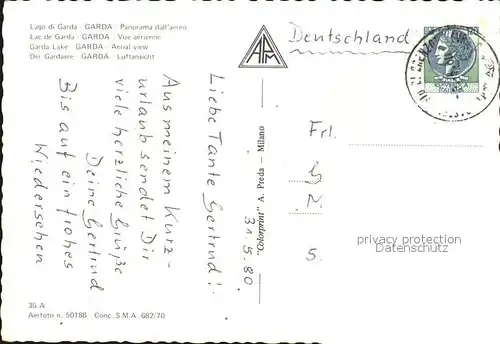 Lago di Garda - GARDA - Panorama dall'aereo
Lac de Garda - GARDA - Vue aérienne
Garda Lake - GARDA - Aerial view
Der Gardasee - GARDA - Luftansicht
APM
Deutschland
31.5.80.
Liebe Tante Gertrud!
Aus meinem Kurz-
urlaub sendet Dir
viele herzliche Grüße
Deine Gertrud
Bis auf ein frohes
Wiedersehen
"Colorprint" A. Preda — Milano
Frl.
G
M
S.
privacy protection
Datenschutz
35 A
Aerfoto n. 50186 Conc. S.M.A. 682/70